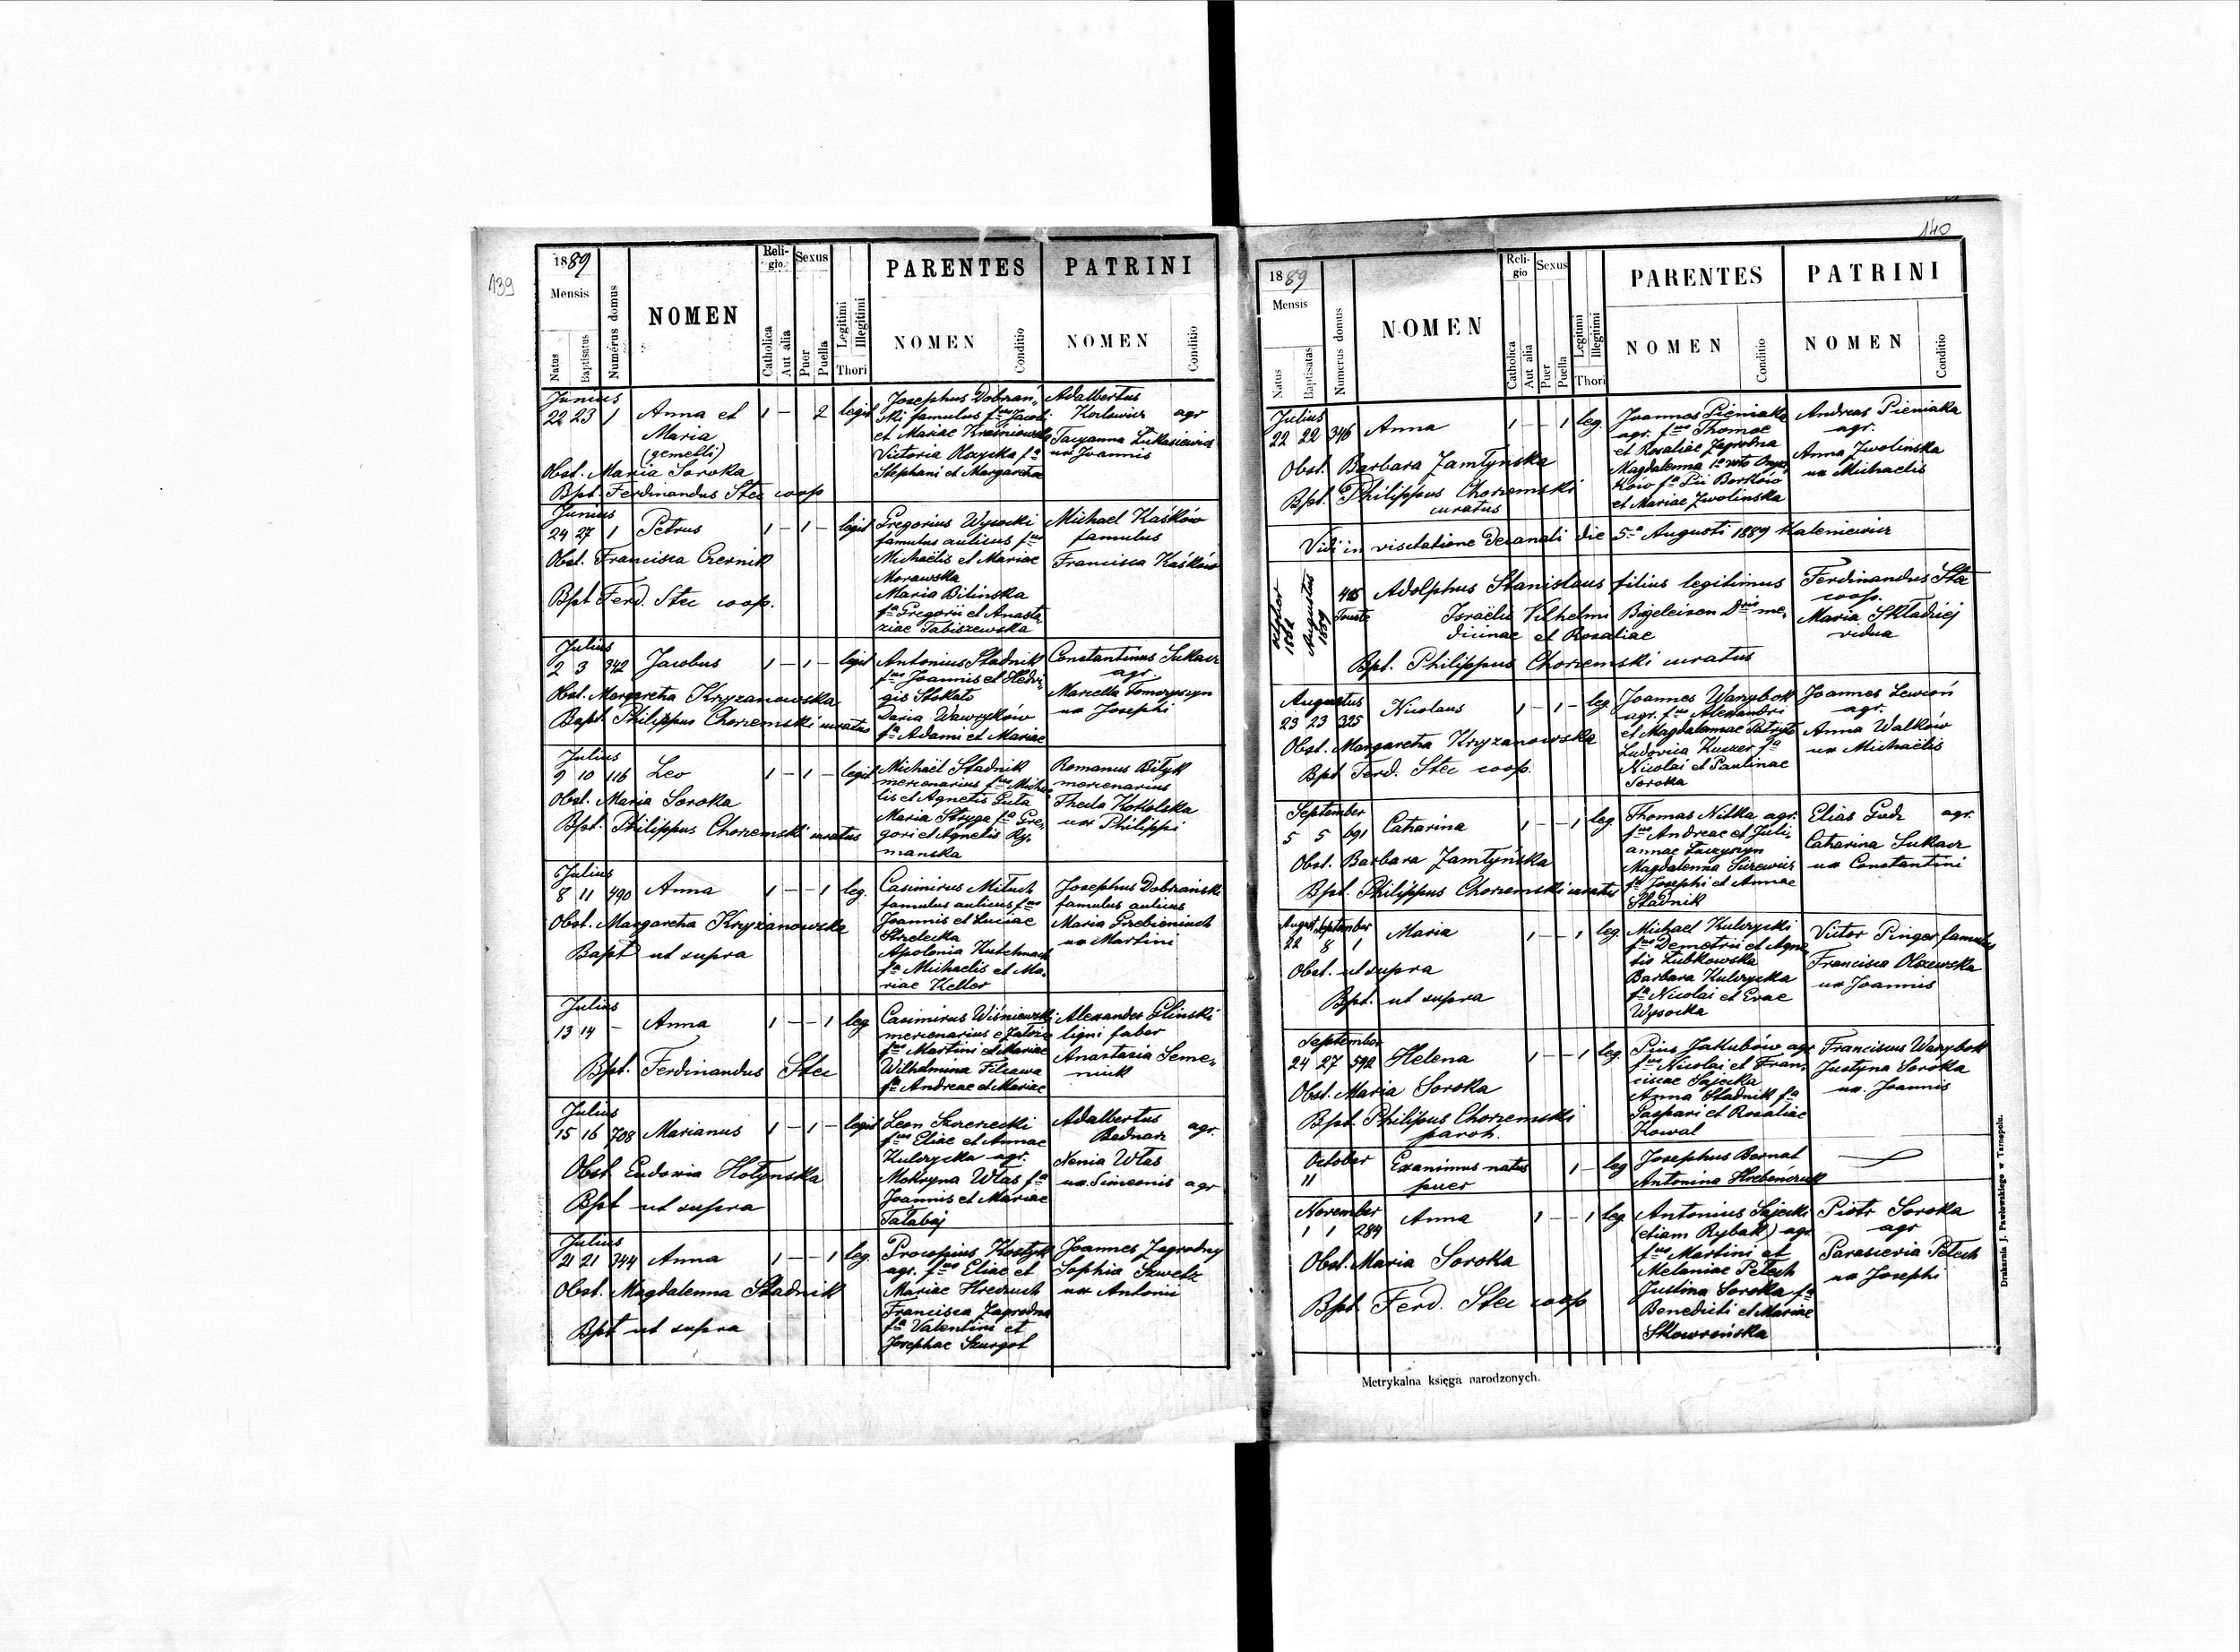 139
1889
Mensis
Natus
Baptisatus
Numérus domus
NOMEN
Reli-
gio.
Catholica
Aut alia
Sexus
Puer
Puella
Legitimi
Illegitimi
Thori
PARENTES
NOMEN
Conditio
PATRINI
NOMEN
Conditio
Junius
22 23 1 Anna et 1 – 2 legit
Maria
(gemelli)
Obst. Maria Soroka
Bpt. Ferdinandus Stec coop
Josephus Dobrzań-
ski famulus fus Jacobi
et Mariae Kraśniowska
Victoria fa
Stephani et Margaretha
Adalbertus
Kozłowicz agr
Tacyanna Łukasiewicz
ux Joannis
Junius
24 27 1 Petrus 1 – 1 – legit
Obst. Francisca Czernik
Bpt Ferd. Stec coop.
Gregorius Wysocki
famulus aulicus fus
Michaëlis et Mariae
Morawska
Maria Bilinska
fa Gregorii et Anasta-
ziae Tabiszewska
Michael Kaśków
famulus
Francisca Kaśków
Julius
2 3 342 Jacobus 1 – 1 – legit
Obst. Margaretha Kryzanowska
Bapt. Philippus Chorzemski curatus
Antonius Stadnik
fus Joannis et Hedvi-
gis Stokato
Daria Wawryków
fa Adami et Mariae
Constantinus Sukacz
agr.
Marcella Tomczyszyn
ux Josephi
Julius
9 10 116 Leo 1 – 1 – legit
Obst. Maria Soroka
Bpt. Philippus Chorzemski curatus
Michaël Stadnik
mercenarius fus Micha-
lis et Agnetis Guta
Maria Stryga fa Gre-
gori et Agnetis Ry-
manska
Romanus Bityk
mercenarius
Thecla Kokolska
ux Philippi
Julius
8 11 490 Anna 1 – – 1 leg.
Obst. Margaretha Kryżanowska
Bapt ut supra
Casimirus Mituch
famulus aulicus fus
Joannis et Luciae
Strzelecka
Apolonia Kutchmach
fa Michaelis et Ma-
riae Keller
Josephus Dobrzański
famulus aulicus
Maria Grzebieniuch
ux Martini
Julius
13 14 – Anna 1 – – 1 leg
Bpt. Ferdinandus Stec
Casimirus Wiśniewski
mercenarius e
fus Martini et Mariae
Wilhelmina Filcawa
fa Andreae et Mariae
Alexander Glinski
ligni faber
Anastasia Seme-
niuk
Julius
15 16 708 Marianus 1 – 1 – legit
Obst Eudoxia Hołynska
Bpt ut supra
Leon Szczerzecki
fus Eliae et Annae
Kulczycka agr.
Mokryna Własfa
Joannis et Mariae
Tatabaj
Adalbertus
Bednarz agr.
Xenia Włas
ux Simeonis agr
Julius
21 21 744 Anna 1 – – 1 leg.
Obst. Magdalenna Stadnik
Bpt ut supra
Procopius Kostyk
agr. fus Eliae et
Mariae Hredzuch
Francisca Zagrodna
fa Valentini et
Josephae Szurgot
Joannes Zagrodny
Sophia Szwetz
ux Antonii
140
1889
Mensis
Natus
Baptisatas
Numerus domus
NOMEN
Reli-
gio
Catholica
Aut alia
Sexus
Puer
Puella
Legtumi
Illegitimi
Thori
PARENTES
NOMEN
Conditio
PATRINI
NOMEN
Conditio
Julius
22 22 346 Anna 1 – – 1 leg.
Obst. Barbara Zamłyńska
Bpt. Philippus Chorzemski
curatus
Joannes Pieniaka
agr. fus Thomae
et Rosaliae Zagrodna
Magdalenna 1o voto
fa Pii Borków
et Mariae Zwolinska
Andreas Pieniaka
agr.
Anna Zwolinska
ux Michaelis
Vidi in visitatione decanali die 5a Augusti 1889 Kaleniewicz
Augustus
1889
Adolphus Stanislaus filius legitimus
Israëlis Vilhelmi Bigeleisen Dris me-
dicinae et Rosaliae
Bpt. Philippus Chorzemski curatus
Ferdinandus Stec
coop.
Maria Składziej
vidua
Augustus
23 23 325 Nicolaus 1 – 1 – leg
Obst. Margaretha Kryzanowska
Bpt Ferd. Stec coop.
Joannes Warybok
agr. fus Alexandri
et Magdalennae Patryk
Ludovica Kuszer fa
Nicolai et Paulinae
Soroka
Joannes Lewcoń
agr.
Anna Walków
ux Michaëlis
September
5 5 691 Catharina 1 – – 1 leg
Obst. Barbara Zamłyńska
Bpt. Philippus Chorzemski curatus
Thomas Nitka agr.
fus Andreae et Juli-
annae Łuczyszyn
Magdalenna Surewicz
fa Josephi et Annae
Stadnik
Elias Gudz agr.
Catharina Sukacz
ux Constantini
August September
22 8 1 Maria 1 – – 1 leg
Obst. ut supra
Bpt. ut supra
Michael Kulczycki
fus Demetrii et Agne-
tis Lubkowska
Barbara Kulczycka
fa Nicolai et Evae
Wysocka
Victor Pinger famulus
Francisca Olszewska
ux Joannis
September
24 27 592 Helena 1 – – 1 leg
Obst. Maria Soroka
Bpt. Philippus Chorzemski
paroh.
Pius Jakubów agr
fus Nicolai et Fran-
ciscae Sajecka
Anna Stadnik fa
Gaspari et Rosaliae
Kowal
Franciscus Warybok
Justyna Soroka
ux. Joannis
October
11 Exanimus natus 1 – leg
puer
Josephus Bernat
Antonina Hrebeńczuk
November
1 1 284 Anna 1 – – 1 leg
Obst. Maria Soroka
Bpt. Ferd. Stec coop
Antonius Sajecki
(etiam Rybak) agr
fus Martini et
Melaniae Petech
Justina Soroka fa
Benedicti et Mariae
Skowrońska
Piotr Soroka
agr
Parascevia Petech
ux Josephi
Metrykalna księga narodzonych.
Drukarnia J. Pawłowskiego w Tarnopolu.